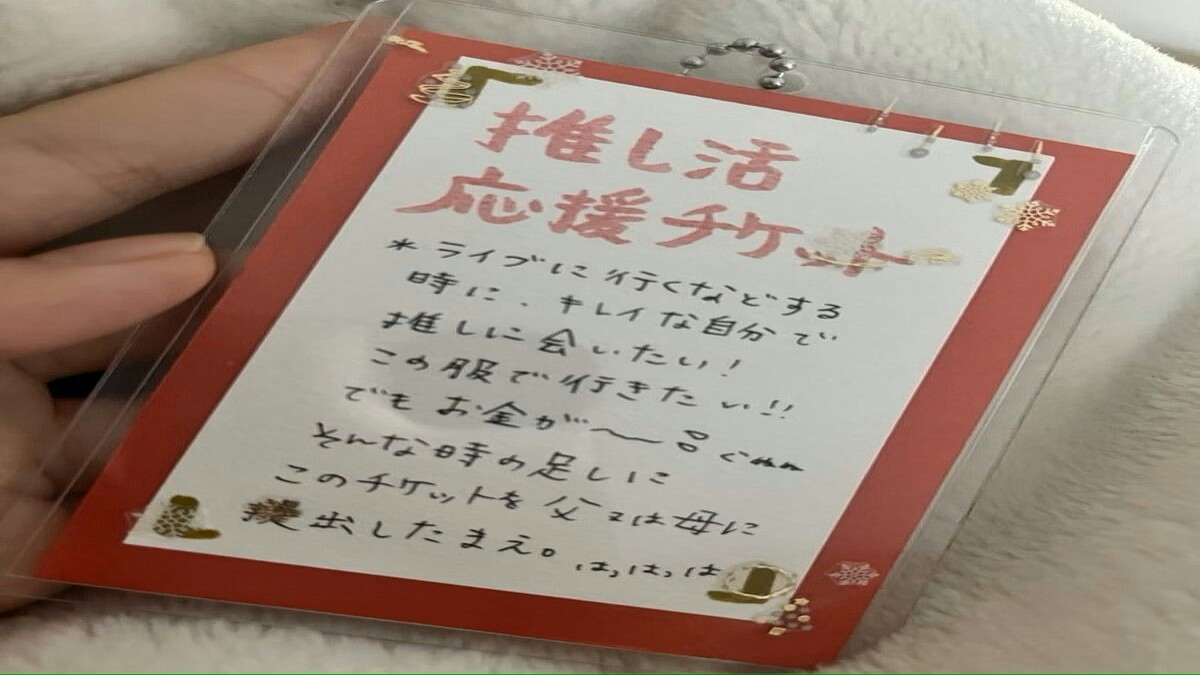 推し活
応援チケット
*ライブに行くなどする
時に、キレイな自分で
推しに会いたい!
この服で行きたい!!
でもお金が〜
そんな時の足しに
このチケットを父又は母に
提出したまえ。
はっはっは